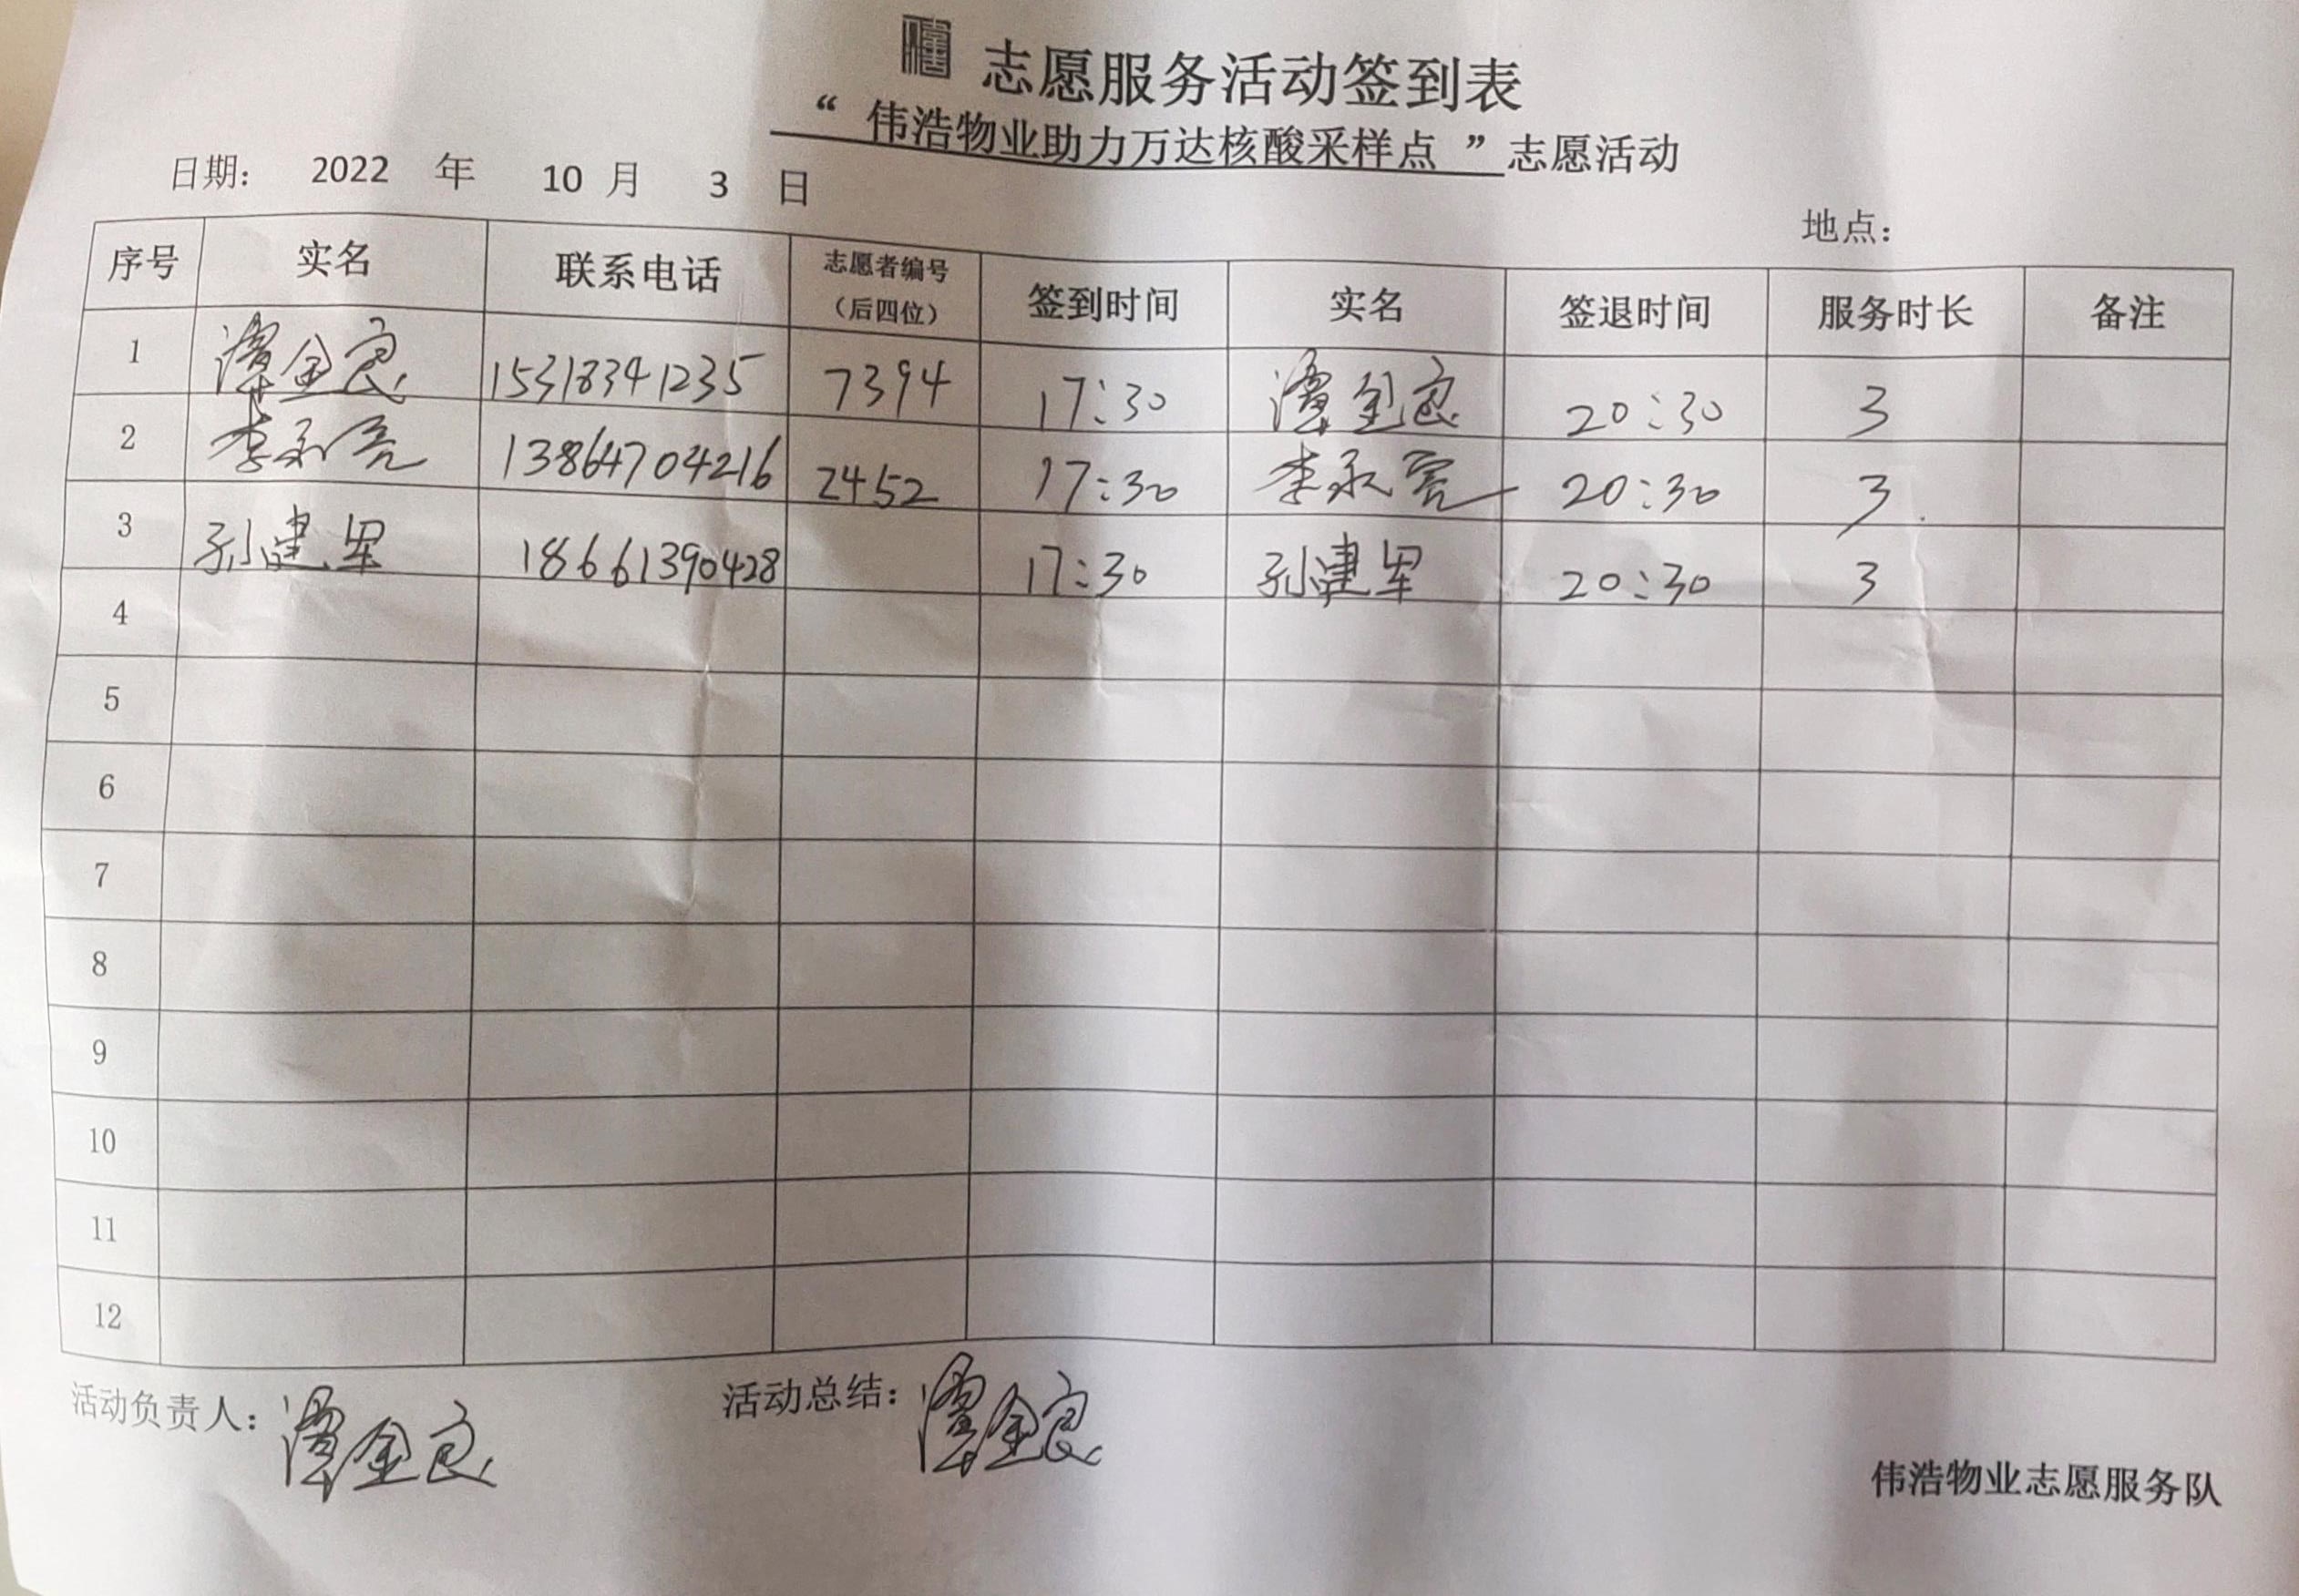 志愿服务活动签到表
“ 伟浩物业助力万达核酸采样点 ”志愿活动
日期： 2022 年 10 月 3 日
地点：
序号 实名 联系电话 志愿者编号（后四位） 签到时间 实名 签退时间 服务时长 备注
1 谭金良 15318341235 7394 17:30 谭金良 20:30 3
2 李永亮 13864704216 2452 17:30 李永亮 20:30 3
3 孙建军 18661390428 17:30 孙建军 20:30 3
4
5
6
7
8
9
10
11
12
活动负责人：谭金良 活动总结：谭金良
伟浩物业志愿服务队